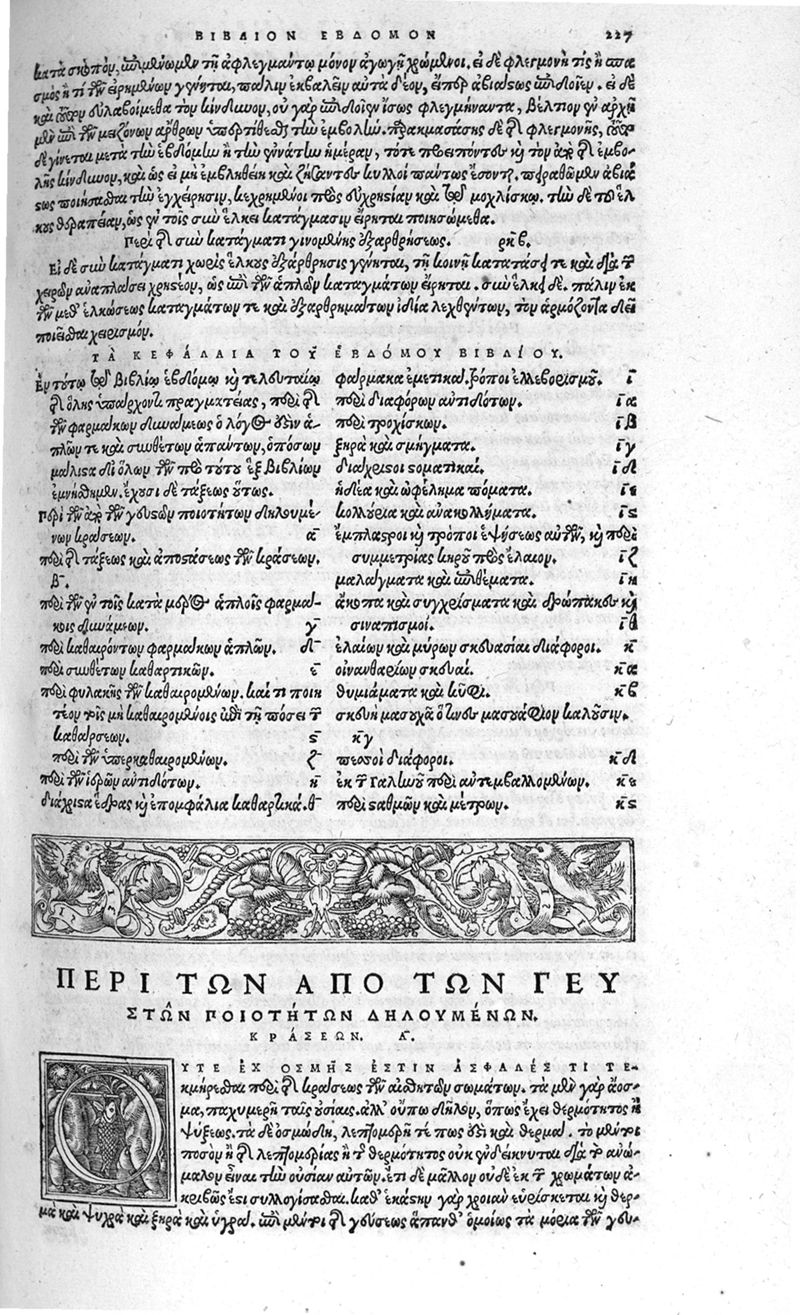 ΒΙΒΛΙΟΝ ΕΒΔΟΜΟΝ 227
κατὰ σκοπὸν, ἐπιμένωμεν τῇ ἀφλεγμάντῳ μόνον ἀγωγῇ χρώμενοι. εἰ δὲ φλεγμονή τις ἢ σπα
σμὸς ἤ τι τῶν εἰρημένων γένηται, πάλιν ἐκβαλεῖν αὐτὰ δέον, εἴπερ ἀβιάστως
καὶ λειπόμεθα τὸν κίνδυνον, οὐ γὰρ ἴσως φλεγμήναντα, βέλτιον ἐν ἀρχῇ
μὲν ἐπὶ τῶν μειζόνων ἄρθρων ὑπερτίθεσθαι τὴν ἐμβολήν. παρακμασάσης δὲ τῆς φλεγμονῆς, ὅπερ
δὲ γίνεται μετὰ τὴν ἑβδόμην ἢ τὴν ἐννάτην ἡμέραν, τότε προειπόντες καὶ τὸν ἐκ τῆς ἐμβο-
λῆς κίνδυνον, καὶ ὡς εἰ μὴ ἐμβληθείη καὶ ζήσαντες κυλλοὶ πάντως ἔσονται, πειραθῶμεν ἀβιά
στως ποιήσασθαι τὴν ἐγχείρησιν, κεχρημένοι πρὸς εὐχρηστίαν καὶ τῷ μοχλίσκῳ. τὴν δὲ τοῦ ἕλ
κους θεραπείαν, ὡς ἐν τοῖς σὺν ἕλκει κατάγμασιν εἴρηται ποιησώμεθα.
Περὶ τῆς σὺν κατάγματι γινομένης ἐξαρθρήσεως. ρκβ.
Εἰ δὲ σὺν κατάγματι χωρὶς ἕλκους ἐξάρθρησις γένηται, τῇ κοινῇ κατατάσει τε καὶ διὰ τῶν
χειρῶν ἀναπλάσει χρηστέον, ὡς ἐπὶ τῶν ἁπλῶν καταγμάτων εἴρηται. σὺν ἕλκει δὲ. πάλιν ἐκ
τῶν μεθ' ἑλκώσεως καταγμάτων τε καὶ ἐξαρθρημάτων ἰδίᾳ λεχθέντων, τὸν ἁρμόζοντα δεῖ
ποιεῖσθαι χειρισμόν.
ΤΑ ΚΕΦΑΛΑΙΑ ΤΟΥ ΕΒΔΟΜΟΥ ΒΙΒΛΙΟΥ.
Ἐν τούτῳ τῷ βιβλίῳ ἑβδόμῳ καὶ τελευταίῳ
τῆς ὅλης ὑπάρχοντι πραγματείας, περὶ τῆς
τῶν φαρμάκων δυνάμεως ὁ λόγος ἐστὶν ἁ-
πλῶν τε καὶ συνθέτων ἁπάντων, ὁπόσων
μάλιστα δι' ὅλων τῶν πρὸ τούτου ἓξ βιβλίων
ἐμνήσθημεν. ἔχουσι δὲ τάξεως οὕτως.
Περὶ τῶν ἐκ τῶν γευστῶν ποιοτήτων δηλουμέ-
νων κράσεων. α
περὶ τῆς τάξεως καὶ ἀποστάσεως τῶν κράσεων.
β.
περὶ τῶν ἐν τοῖς κατὰ μέρος ἁπλοῖς φαρμά-
κοις δυνάμεων. γ
περὶ καθαιρόντων φαρμάκων ἁπλῶν. δ
περὶ συνθέτων καθαρτικῶν. ε
περὶ φυλακῆς τῶν καθαιρομένων. καὶ τί ποιη
τέον τοῖς μὴ καθαιρομένοις ἐπὶ τῇ πόσει τῶν
καθάρσεων. ς
περὶ τῶν ὑπερκαθαιρομένων. ζ
περὶ τῶν ἱερῶν ἀντιδότων. η
διάχριστα ἕδρας καὶ ἐπομφάλια καθαρτικά. θ
φάρμακα ἐμετικά. τρόποι ἑλλεβορισμοῦ. ι
περὶ διαφόρων ἀντιδότων. ια
περὶ τροχίσκων. ιβ
ξηρὰ καὶ σμήγματα. ιγ
διάχριστοι στοματικαί. ιδ
ἡδέα καὶ ὠφέλημα πόματα. ιε
κολλούρια καὶ ἀνακολλήματα. ις
ἔμπλαστροι καὶ τρόποι ἑψήσεως αὐτῶν, καὶ περὶ
συμμετρίας κηροῦ πρὸς ἔλαιον. ιζ
μαλάγματα καὶ ἐπιθέματα. ιη
ἄκοπα καὶ συγχρίσματα καὶ δρώπακες καὶ
σιναπισμοί. ιθ
ἐλαίων καὶ μύρων σκευασίαι διάφοροι. κ
οἰνανθαρίων σκευαί. κα
θυμιάματα καὶ κῦφι. κβ
σκευὴ μασουχᾶ ὅ τινες μασουάφιον καλοῦσιν.
κγ
πεσσοὶ διάφοροι. κδ
ἐκ τῶν Γαληνοῦ περὶ ἀντεμβαλλομένων. κε
περὶ σταθμῶν καὶ μέτρων. κς
ΠΕΡΙ ΤΩΝ ΑΠΟ ΤΩΝ ΓΕΥ
ΣΤΩΝ ΠΟΙΟΤΗΤΩΝ ΔΗΛΟΥΜΕΝΩΝ.
ΚΡΑΣΕΩΝ. Α.
ΟΥΤΕ ΕΧ ΟΣΜΗΣ ΕΣΤΙΝ ΑΣΦΑΛΕΣ ΤΙ ΤΕ-
κμήρεσθαι περὶ τῆς κράσεως τῶν αἰσθητῶν σωμάτων. τὰ μὲν γὰρ ἄοσ-
μα, παχυμερῆ ταῖς οὐσίαις. ἀλλ' οὔπω δῆλον, ὅπως ἔχει θερμότητος ἢ
ψύξεως. τὰ δὲ ὀσμώδη, λεπτομερῆ τέ πως ἐστὶ καὶ θερμά. τὸ μέντοι
ποσὸν ἢ τῆς λεπτομερίας ἢ τῆς θερμότητος οὐκ ἐνδείκνυται διὰ τὸ ἀνώ-
μαλον εἶναι τὴν οὐσίαν αὐτῶν. ἔτι δὲ μᾶλλον οὐδὲ ἐκ τῶν χρωμάτων ἀ-
κριβῶς ἔστι συλλογίσασθαι. καθ' ἑκάστην γὰρ χροιὰν εὑρίσκεται καὶ θερ-
μὰ καὶ ψυχρὰ καὶ ξηρὰ καὶ ὑγρά. ἐπὶ μέντοι τῆς γεύσεως ἅπανθ' ὁμοίως τὰ μόρια τῶν γευ-